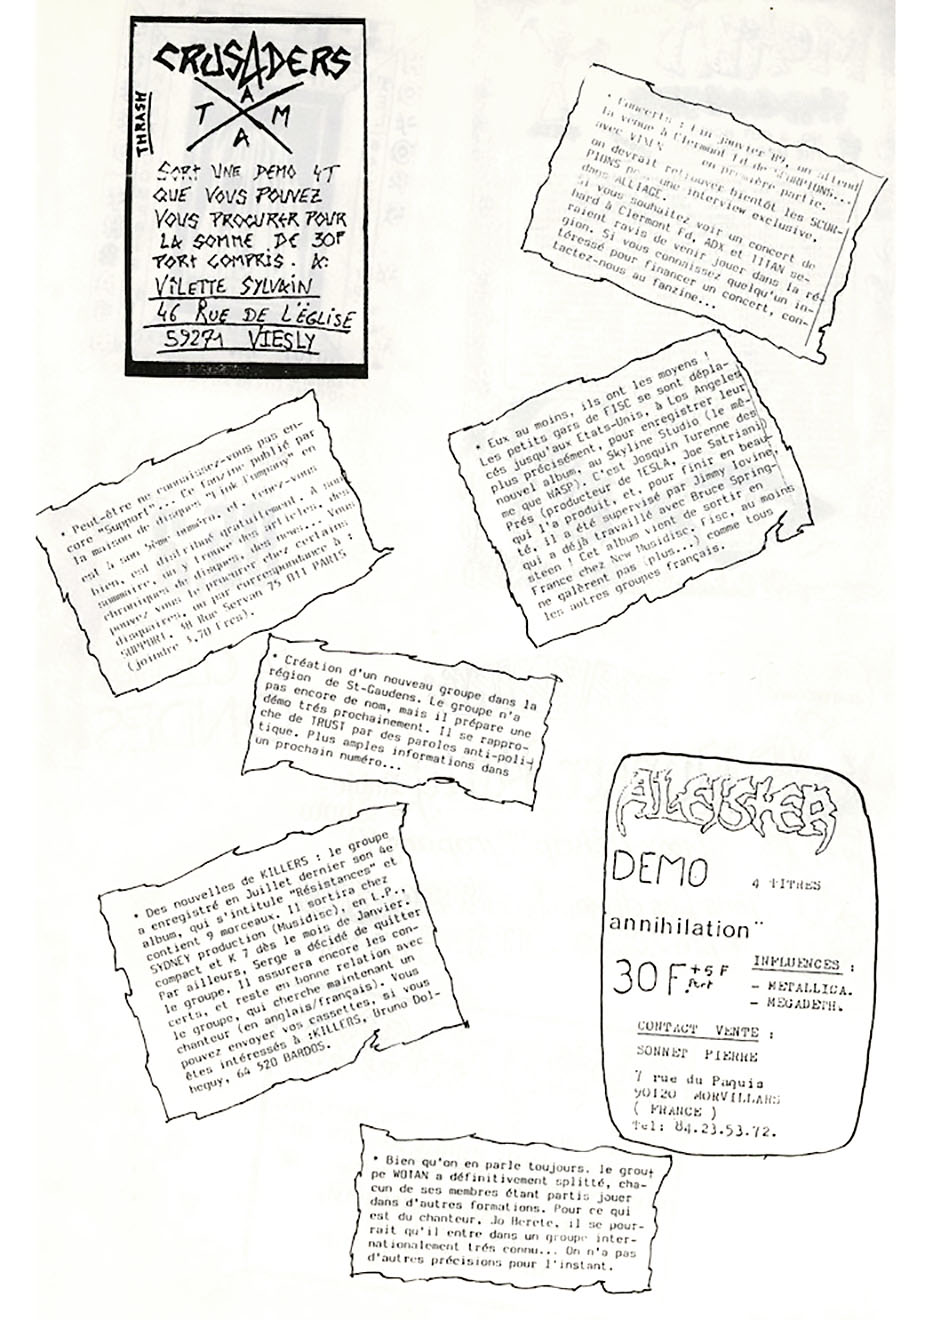 CRUSADERS
THRASH
A
T M
A
SORT UNE DEMO 4T
QUE VOUS POUVEZ
VOUS PROCURER POUR
LA SOMME DE 30F
PORT COMPRIS. A:
VILETTE SYLVAIN
46 RUE DE L'ÉGLISE
59271 VIESLY
• Concerts : Fin janvier 89, on attend
la venue à Clermont Fd de SCORPIONS...
avec en première partie.
on devrait retrouver bientôt les SCOR-
PIONS pour une interview exclusive,
dans ALLIAGE.
Si vous souhaitez voir un concert de
hard à Clermont Fd, ADX et TITAN se-
raient ravis de venir jouer dans la ré-
gion. Si vous connaissez quelqu'un in-
téressé pour financer un concert, con-
tactez-nous au fanzine...
• Eux au moins, ils ont les moyens !
Les petits gars de FISC se sont dépla-
cés jusqu'aux Etats-Unis, à Los Angeles
plus précisément, pour enregistrer leur
nouvel album, au Skyline Studio (le mê-
me que WASP). C'est Josquin Turenne des
Prés (producteur de TESLA, Joe Satriani)
qui l'a produit, et, pour finir en beau-
té, il a été supervisé par Jimmy Iovine,
qui a déjà travaillé avec Bruce Spring-
steen ! Cet album vient de sortir en
France chez New Musidisc. Fisc, au moins
ne galèrent pas (plus...) comme tous
les autres groupes français.
• Peut-être ne connaissez-vous pas en-
core "Support"... Ce fanzine publié par
la maison de disques "Link Company" en
est à son 5ème numéro, et tenez-vous
bien, est distribué gratuitement. A son
sommaire, on trouve des articles, des
chroniques de disques, des news... Vous
pouvez vous le procurer chez certains
disquaires, ou par correspondance à :
SUPPORT, 30 Rue Servan 75 011 PARIS
(joindre 3,70 Frcs).
• Création d'un nouveau groupe dans la
région de St-Gaudens. Le groupe n'a
pas encore de nom, mais il prépare une
démo trés prochainement. Il se rappro-
che de TRUST par des paroles anti-poli-
tique. Plus amples informations dans
un prochain numéro...
• Des nouvelles de KILLERS : le groupe
a enregistré en Juillet dernier son 4e
album, qui s'intitule "Résistances" et
contient 9 morceaux. Il sortira chez
SYDNEY production (Musidisc), en L.P.,
compact et K 7 dès le mois de Janvier.
Par ailleurs, Serge a décidé de quitter
le groupe. Il assurera encore les con-
certs, et reste en bonne relation avec
le groupe, qui cherche maintenant un
chanteur (en anglais/français). Vous
pouvez envoyer vos cassettes, si vous
êtes intéressés à :KILLERS, Bruno Dol-
heguy, 64 520 BARDOS.
ALEISTER
DEMO 4 TITRES
annihilation"
30F +5F Port
INFLUENCES :
- METALLICA.
- MEGADETH.
CONTACT VENTE :
SONNET PIERRE
7 rue du Paquis
90120 MORVILLARS
( FRANCE )
Tel: 84.23.53.72.
• Bien qu'on en parle toujours, le grou-
pe WOTAN a définitivement splitté, cha-
cun de ses membres étant partis jouer
dans d'autres formations. Pour ce qui
est du chanteur, Jo Herete, il se pour-
rait qu'il entre dans un groupe inter-
nationalement trés connu... On n'a pas
d'autres précisions pour l'instant.